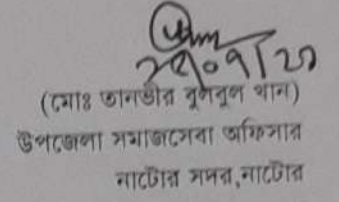 (মোঃ তানভীর বুলবুল খান)
উপজেলা সমাজসেবা অফিসার
নাটোর সদর,নাটোর